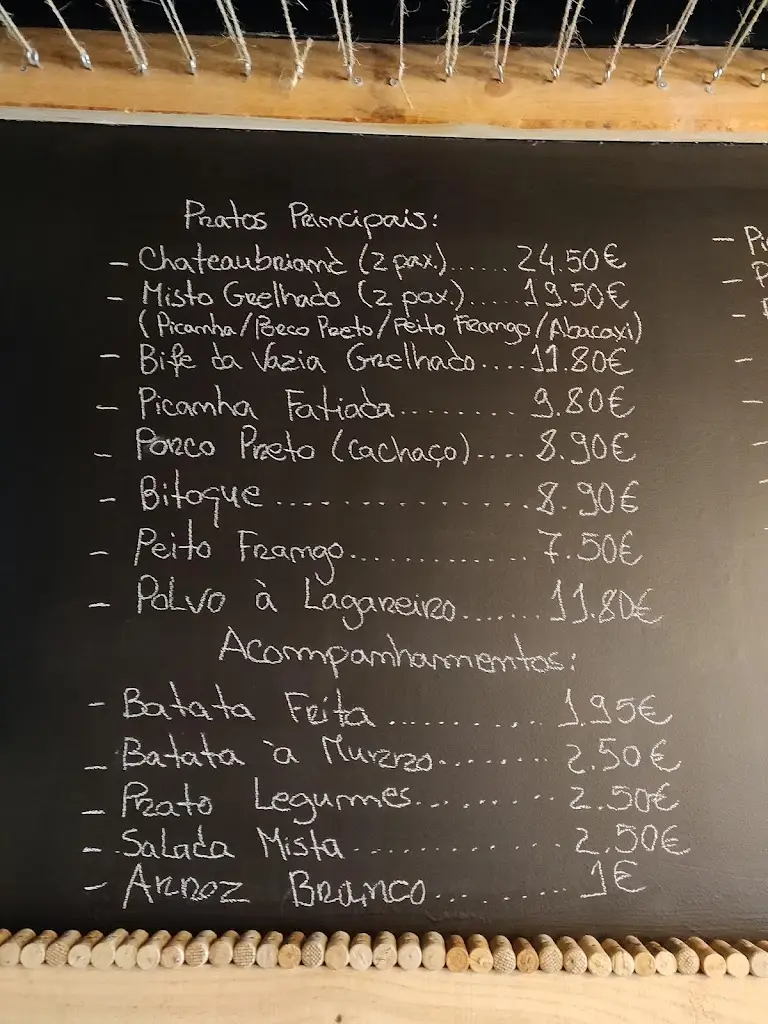 Pratos Principais:
- Chateaubriand (2 pax.)...... 24.50€
- Misto Grelhado (2 pax.)..... 19.50€
(Picanha/Porco Preto/Peito Frango/Abacaxi)
- Bife da Vazia Grelhado.... 11.80€
- Picanha Fatiada............ 9.80€
- Porco Preto (cachaço).... 8.90€
- Bitoque.................. 8.90€
- Peito Frango.............. 7.50€
- Polvo à Lagareiro....... 11.80€
Acompanhamentos:
- Batata Frita ........... 1.95€
- Batata à Murro......... 2.50€
- Prato Legumes.......... 2.50€
- Salada Mista............. 2.50€
- Arroz Branco........... 1€